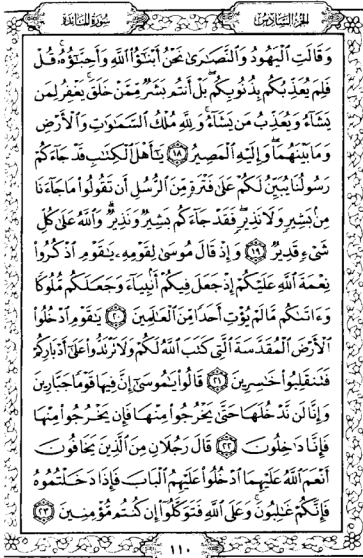 سورة المائدة
الجزء السادس
وَقَالَتِ الْيَهُودُ وَالنَّصَارَىٰ نَحْنُ أَبْنَاؤُا اللَّهِ وَأَحِبَّاؤُهُ قُلْ
فَلِمَ يُعَذِّبُكُم بِذُنُوبِكُم بَلْ أَنتُم بَشَرٌ مِّمَّنْ خَلَقَ يَغْفِرُ لِمَن
يَشَاءُ وَيُعَذِّبُ مَن يَشَاءُ وَلِلَّهِ مُلْكُ السَّمَاوَاتِ وَالْأَرْضِ
وَمَا بَيْنَهُمَا وَإِلَيْهِ الْمَصِيرُ ١٨ يَا أَهْلَ الْكِتَابِ قَدْ جَاءَكُمْ
رَسُولُنَا يُبَيِّنُ لَكُمْ عَلَىٰ فَتْرَةٍ مِّنَ الرُّسُلِ أَن تَقُولُوا مَا جَاءَنَا
مِن بَشِيرٍ وَلَا نَذِيرٍ فَقَدْ جَاءَكُم بَشِيرٌ وَنَذِيرٌ وَاللَّهُ عَلَىٰ كُلِّ
شَيْءٍ قَدِيرٌ ١٩ وَإِذْ قَالَ مُوسَىٰ لِقَوْمِهِ يَا قَوْمِ اذْكُرُوا
نِعْمَةَ اللَّهِ عَلَيْكُمْ إِذْ جَعَلَ فِيكُمْ أَنبِيَاءَ وَجَعَلَكُم مُّلُوكًا
وَءَاتَاكُم مَّا لَمْ يُؤْتِ أَحَدًا مِّنَ الْعَالَمِينَ ٢٠ يَا قَوْمِ ادْخُلُوا
الْأَرْضَ الْمُقَدَّسَةَ الَّتِي كَتَبَ اللَّهُ لَكُمْ وَلَا تَرْتَدُّوا عَلَىٰ أَدْبَارِكُمْ
فَتَنقَلِبُوا خَاسِرِينَ ٢١ قَالُوا يَا مُوسَىٰ إِنَّ فِيهَا قَوْمًا جَبَّارِينَ
وَإِنَّا لَن نَّدْخُلَهَا حَتَّىٰ يَخْرُجُوا مِنْهَا فَإِن يَخْرُجُوا مِنْهَا
فَإِنَّا دَاخِلُونَ ٢٢ قَالَ رَجُلَانِ مِنَ الَّذِينَ يَخَافُونَ
أَنْعَمَ اللَّهُ عَلَيْهِمَا ادْخُلُوا عَلَيْهِمُ الْبَابَ فَإِذَا دَخَلْتُمُوهُ
فَإِنَّكُمْ غَالِبُونَ وَعَلَى اللَّهِ فَتَوَكَّلُوا إِن كُنتُم مُّؤْمِنِينَ ٢٣
١١٠